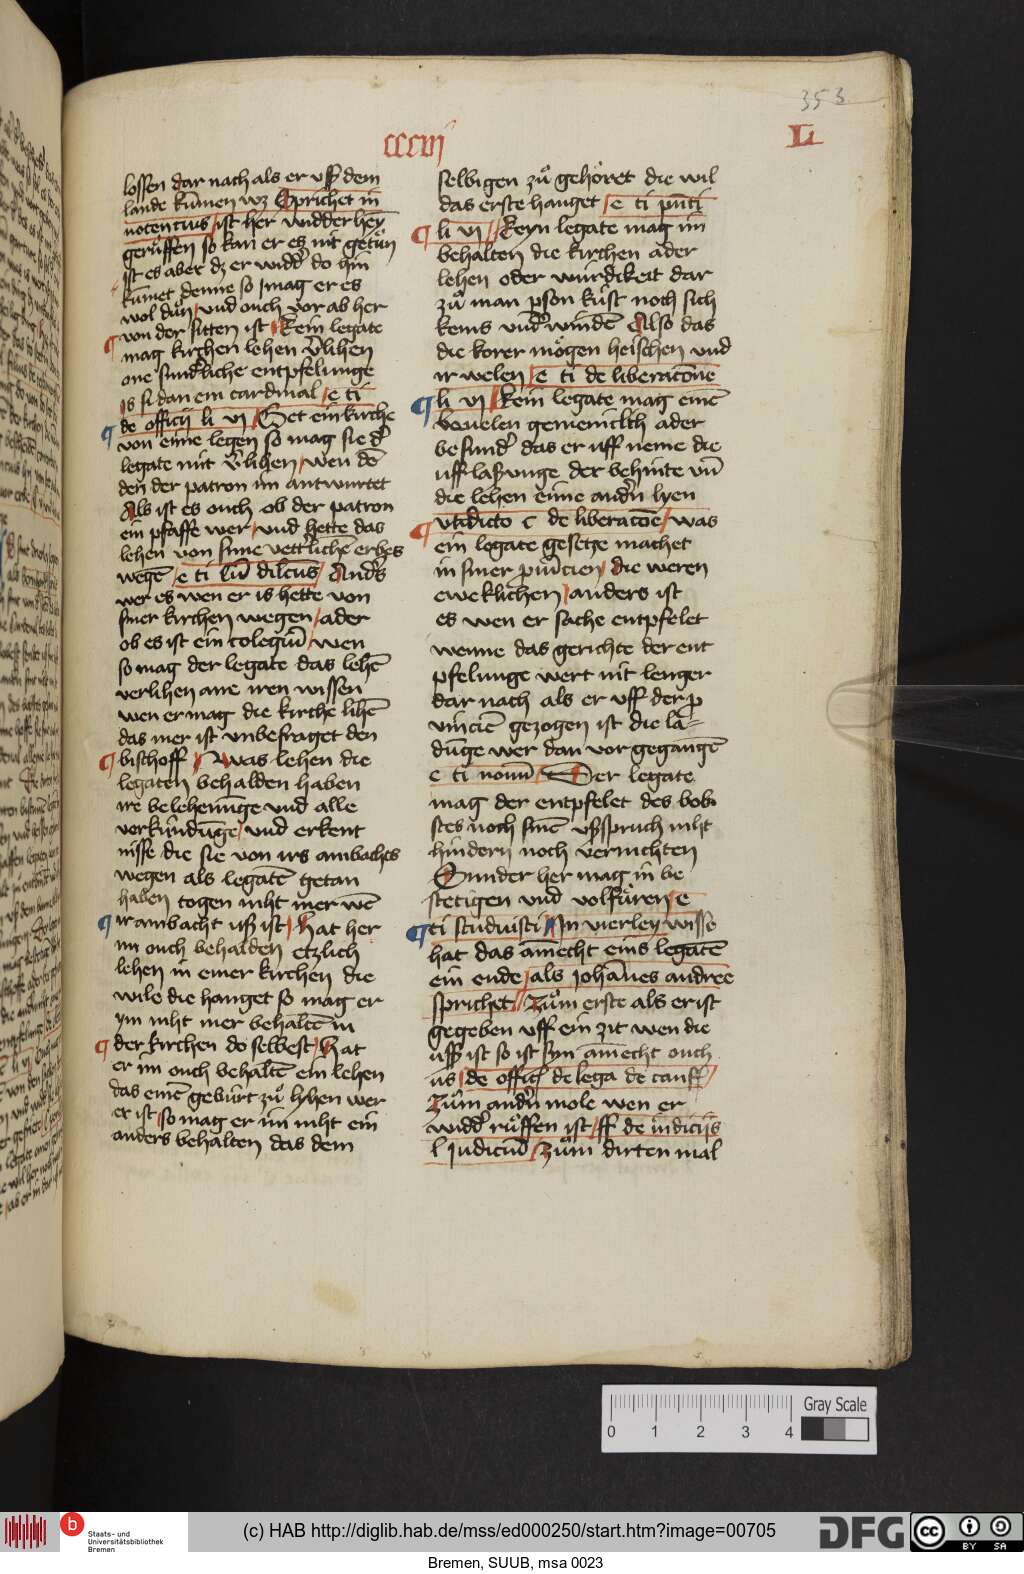 353
cccvij
L
lossen dar nach als er vsß dem
lande kūmen wz Sprichet in
nocentius ist her widder hey
gerůffen so kan er es nit getůn
ist es aber dz er widd͛ do hin
kūmet denne so mag er es
wol důn vnd ouch vor ab her
von der sitten ist Kein legate
mag kirchen lehen v͛lihen
one sund͛liche entpfelunge
is si dan ein cardinal e ti
de officij li vi Het ein kirche
von eine legen so mag sie d͛
legate nit v͛lihen wen dē
den der patron im antwurtet
Als ist es ouch ob der patron
ein pfaffe wer vnd hette das
lehen von sime vett͛lichē erbes
wegē e ti cū dilcūs And͛s
wer es wen er is hette von
siner kirchen wegen ader
ob es ist ein colegiū wen
so mag der legate das lehē
verlihen ane iren wissen
wen er mag die kirche lihē
das mer ist vnbefraget den
bischoff Was lehen die
legaten behalden haben
ire belehenūge vnd alle
verkündūge vnd erkent
nisse die sie von irs ambachtes
wegen als legatē getan
haben togen niht mer wē
ir ambacht usß ist Hat her
im ouch behalden etzlich
lehen in einer kirchen die
wile die hanget so mag er
ym niht mer behaltē in
der kirchen do selbest Hat
er im ouch behaltē ein lehen
das einē geburt zů lyhen wer
er ist so mag er im niht ein
anders behalten das dem
selbigen zů gehöret die wil
das erste hanget e ti p̄nti
li vi Keyn legate mag im
behalten die kirchen ader
lehen oder wurdikeit dar
zů man pson kust noch sich
keins vnd͛windē Also das
die korer mögen heischen vnd
ir welen e ti de liberacōne
li vi Kein legate mag einē
beuelen gemeinlich ader
besund͛ das er uff neme die
uff laßunge der behinte vn̄
die lehen eime and͛n lyen
vt dicto c de liberacōe was
ein legate gesetze machet
in siner puīcien die weren
eweklichen anders ist
es wen er sache entpfelet
wenne das gerichte der ent
pfelunge wert nit lenger
dar nach als er uff der p
uincie gezogen ist die la
dūge wer dan vor gegangē
e ti nouit Der legate
mag der entpfelet des bob
stes noch sinē vsßspruch niht
hindern noch vernichten
Sunder her mag in be
stetigen vnd volfüren e
ti studuisti In vierley wisse
hat das amecht eins legatē
ein ende als johānes andree
sprichet Zům erste als er ist
gegeben uff ein zit wen die
usß ist so ist syn amecht ouch
us de offitij de lega de causs
Zům and͛n mole wen er
widd͛ rüffen ist ff de iudicijs
l judiciū Zům dirten mal
0 1 2 3 4
Gray Scale
b
Staats- und
Universitätsbibliothek
Bremen
(c) HAB http://diglib.hab.de/mss/ed000250/start.htm?image=00705
DFG
cc
BY SA
Bremen, SUUB, msa 0023